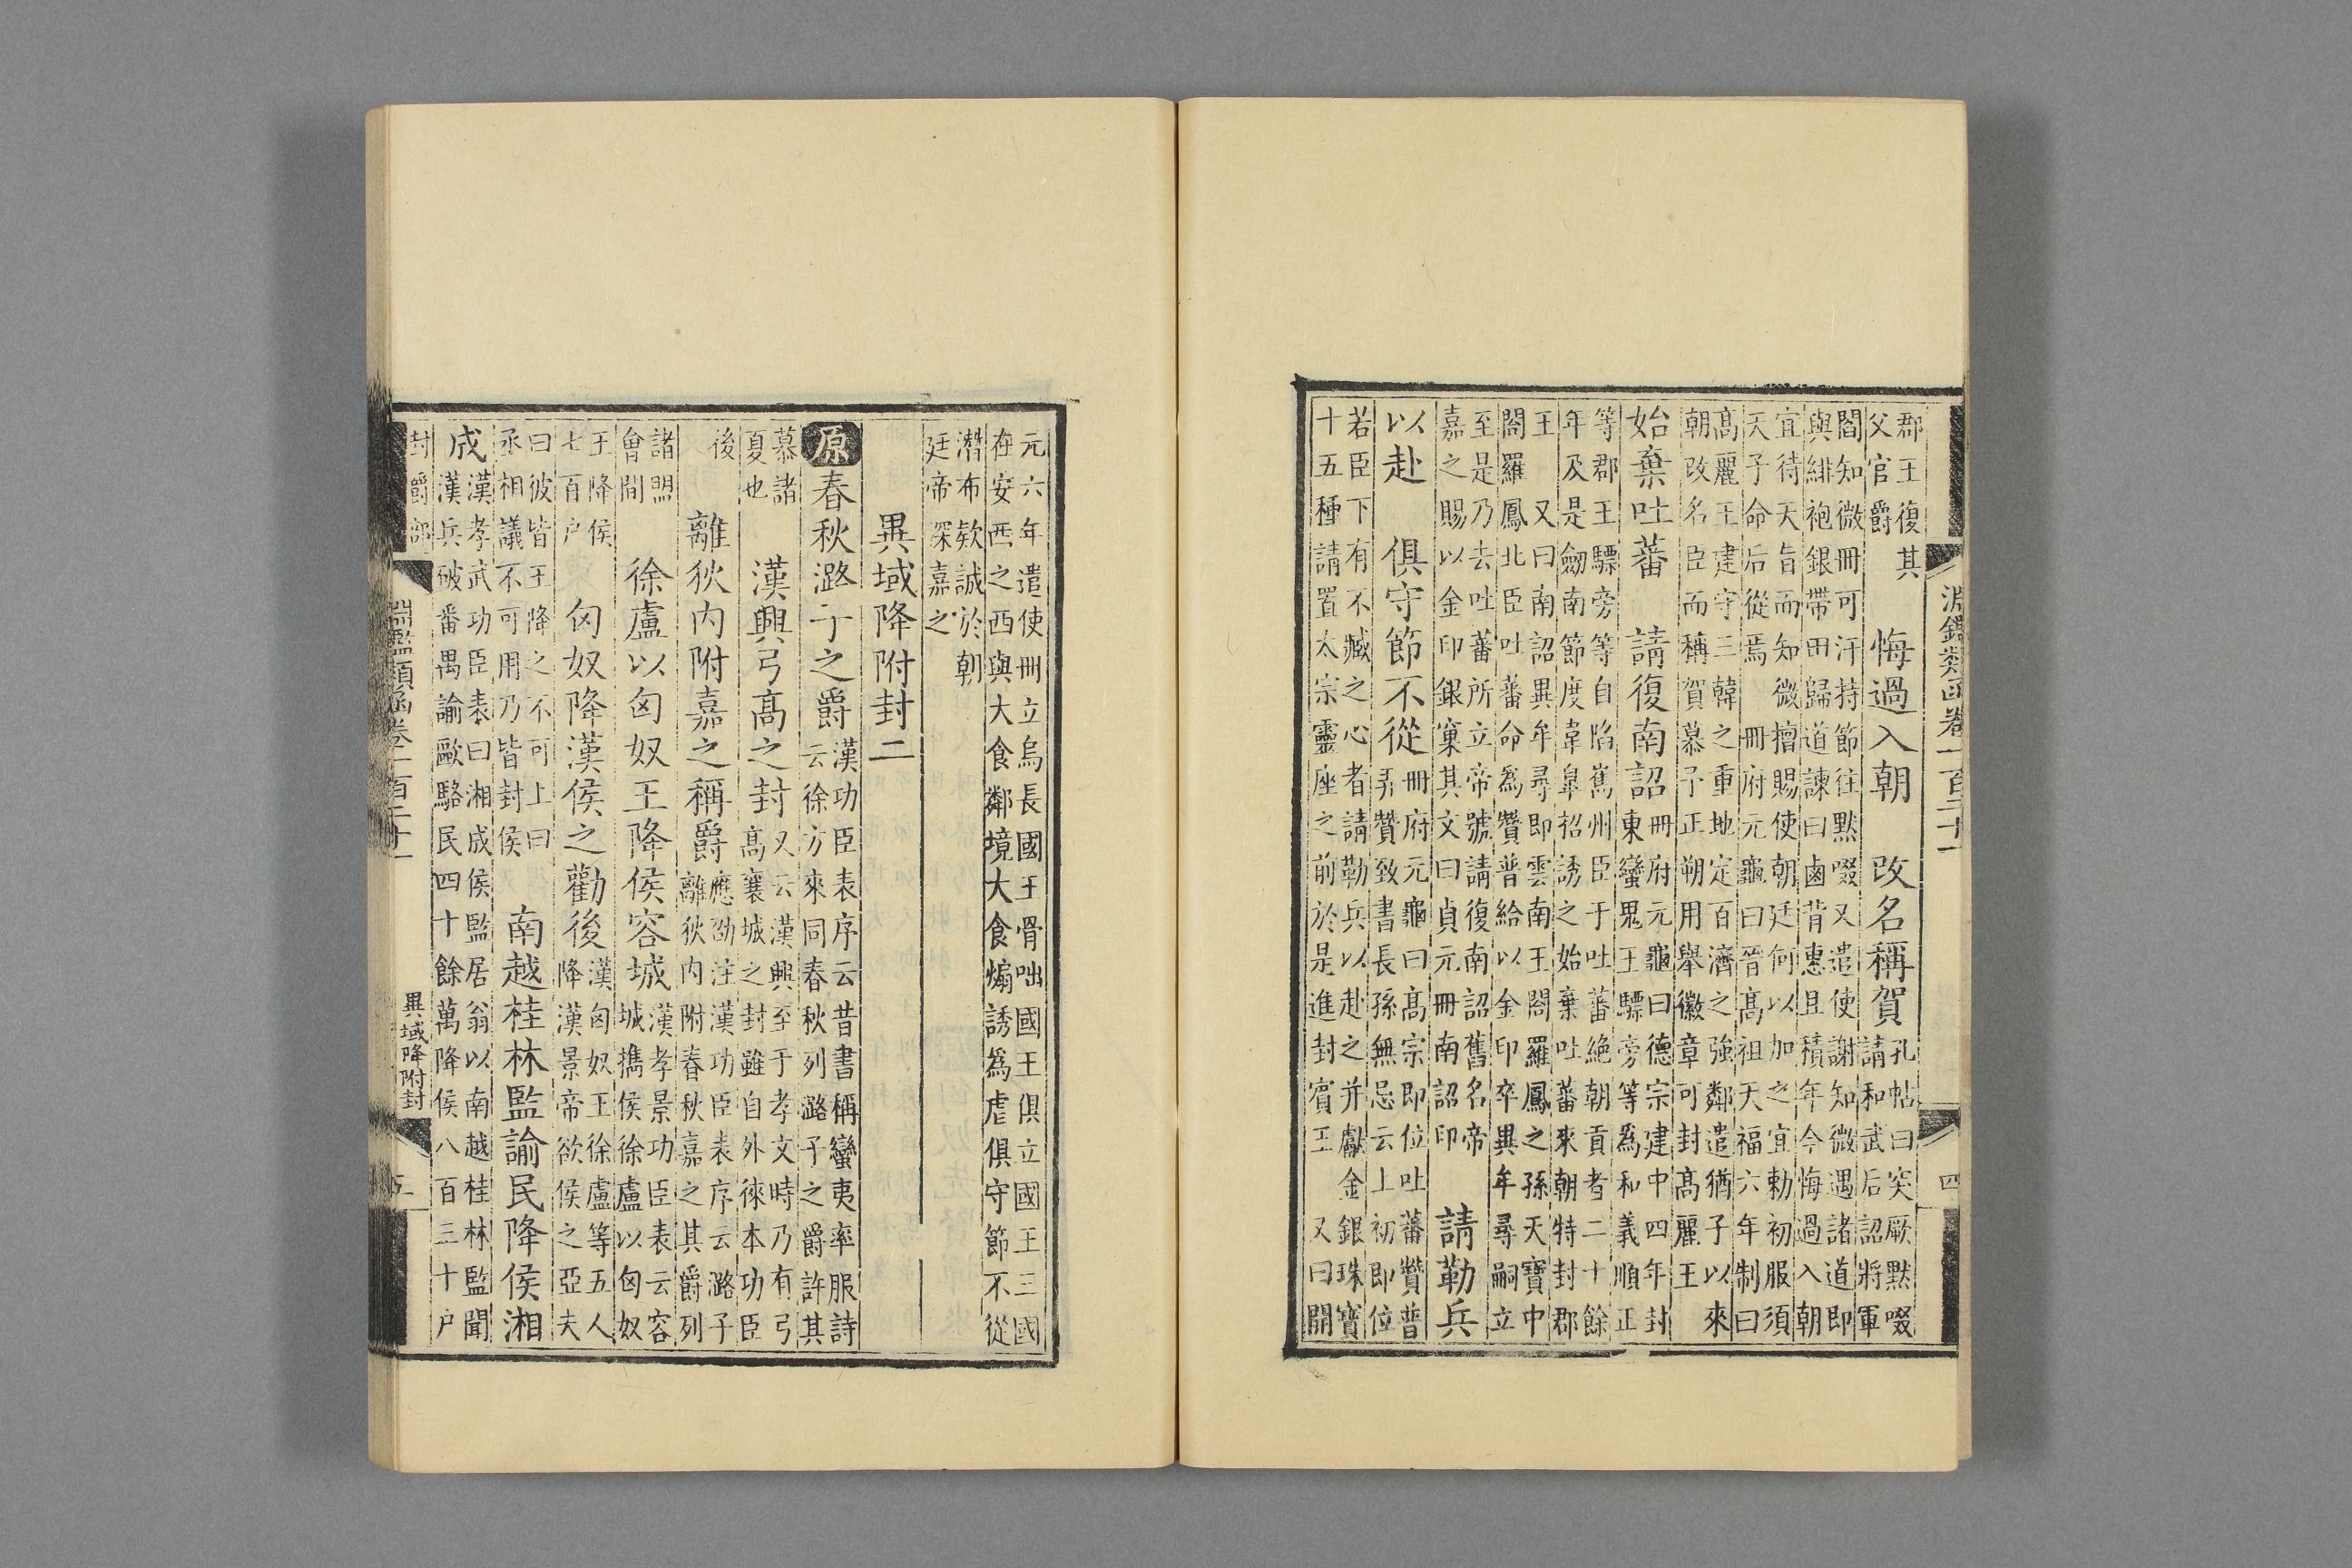 淵鑑類函卷一百二十一 四
郡王復其父官爵 悔過入朝 改名稱賀 孔帖曰突厥默啜請和武后詔將軍
閻知微冊可汗持節往默啜又遣使謝知微遇諸道即與緋袍銀帶田歸道諫曰鹵背惠且積年今悔過入朝
宜待天旨而知微擅賜使朝廷何以加之宜勅初服須天子命后從焉 冊府元龜曰晉高祖天福六年制曰
高麗王建守三韓之重地定百濟之強鄰遣猶子以來朝改名臣而稱賀慕予正朔用舉徽章可封高麗王
始棄吐蕃 請復南詔 冊府元龜曰德宗建中四年封東蠻鬼王驃旁等為和義順正
等郡王驃旁等自陷嶲州臣于吐蕃絶朝貢者二十餘年及是劒南節度韋皐招誘之始棄吐蕃來朝特封郡
王 又曰南詔異牟尋即雲南王閤羅鳳之孫天寶中閤羅鳳北臣吐蕃命為贊普給以金印卒異牟尋嗣立
至是乃去吐蕃所立帝號請復南詔舊名帝嘉之賜以金印銀窠其文曰貞元冊南詔印 請勒兵
以赴 俱守節不從 冊府元龜曰高宗即位吐蕃贊普弄贊致書長孫無忌云上初即位
若臣下有不臧之心者請勒兵以赴之并獻金銀珠寶十五種請置太宗靈座之前於是進封賓王 又曰開
元六年遣使冊立烏長國王骨咄國王俱立國王三國在安西之西與大食鄰境大食煽誘為虐俱守節不從
潛布欵誠於朝廷帝深嘉之
異域降附封二
原 春秋潞子之爵 漢功臣表序云昔書稱蠻夷率服詩云徐方來同春秋列潞子之爵許其
慕諸夏也 漢興弓高之封 又云漢興至于孝文時乃有弓高襄城之封雖自外徠本功臣
後 離狄内附嘉之稱爵 應劭注漢功臣表序云潞子離狄内附春秋嘉之其爵列
諸盟會間 徐盧以匈奴王降侯容城 漢孝景功臣表云容城攜侯徐盧以匈奴
王降侯七百户 匈奴降漢侯之勸後 漢匈奴王徐盧等五人降漢景帝欲侯之亞夫
曰彼皆王降之不可上曰丞相議不可用乃皆封侯 南越桂林監諭民降侯湘
成 漢孝武功臣表曰湘成侯監居翁以南越桂林監聞漢兵破番禺諭甌駱民四十餘萬降侯八百三十户
封爵部 淵鑑類函卷一百二十一 異域降附封 五